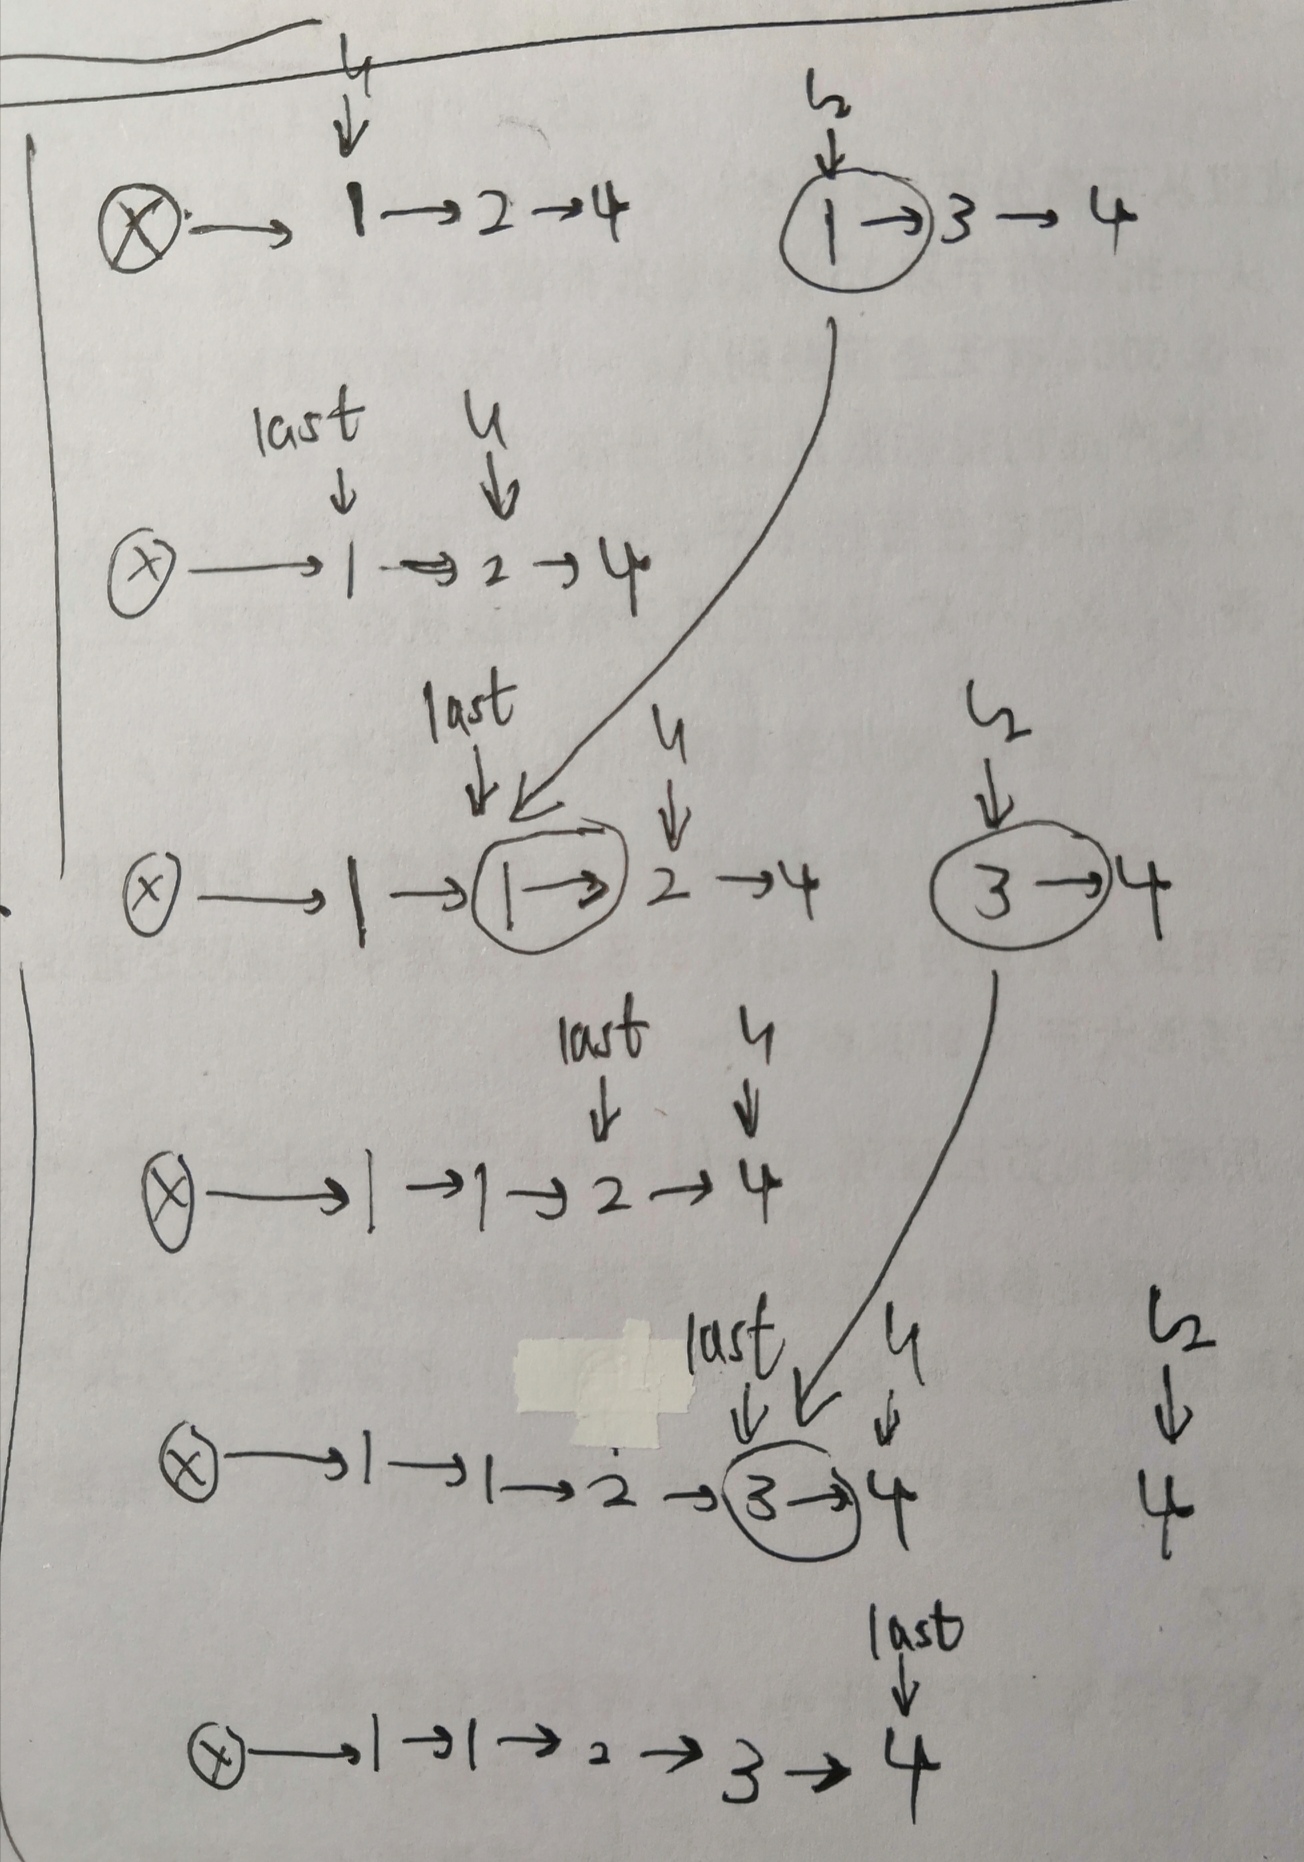 l1 l2
↓ ↓
ⓧ → 1 → 2 → 4 1 → 3 → 4
last l1
↓ ↓
ⓧ → 1 → 2 → 4
last l1 l2
↓ ↓ ↓
ⓧ → 1 → 1 → 2 → 4 3 → 4
last l1
↓ ↓
ⓧ → 1 → 1 → 2 → 4
last l1 l2
↓ ↓ ↓
ⓧ → 1 → 1 → 2 → 3 → 4 4
last
↓
ⓧ → 1 → 1 → 2 → 3 → 4